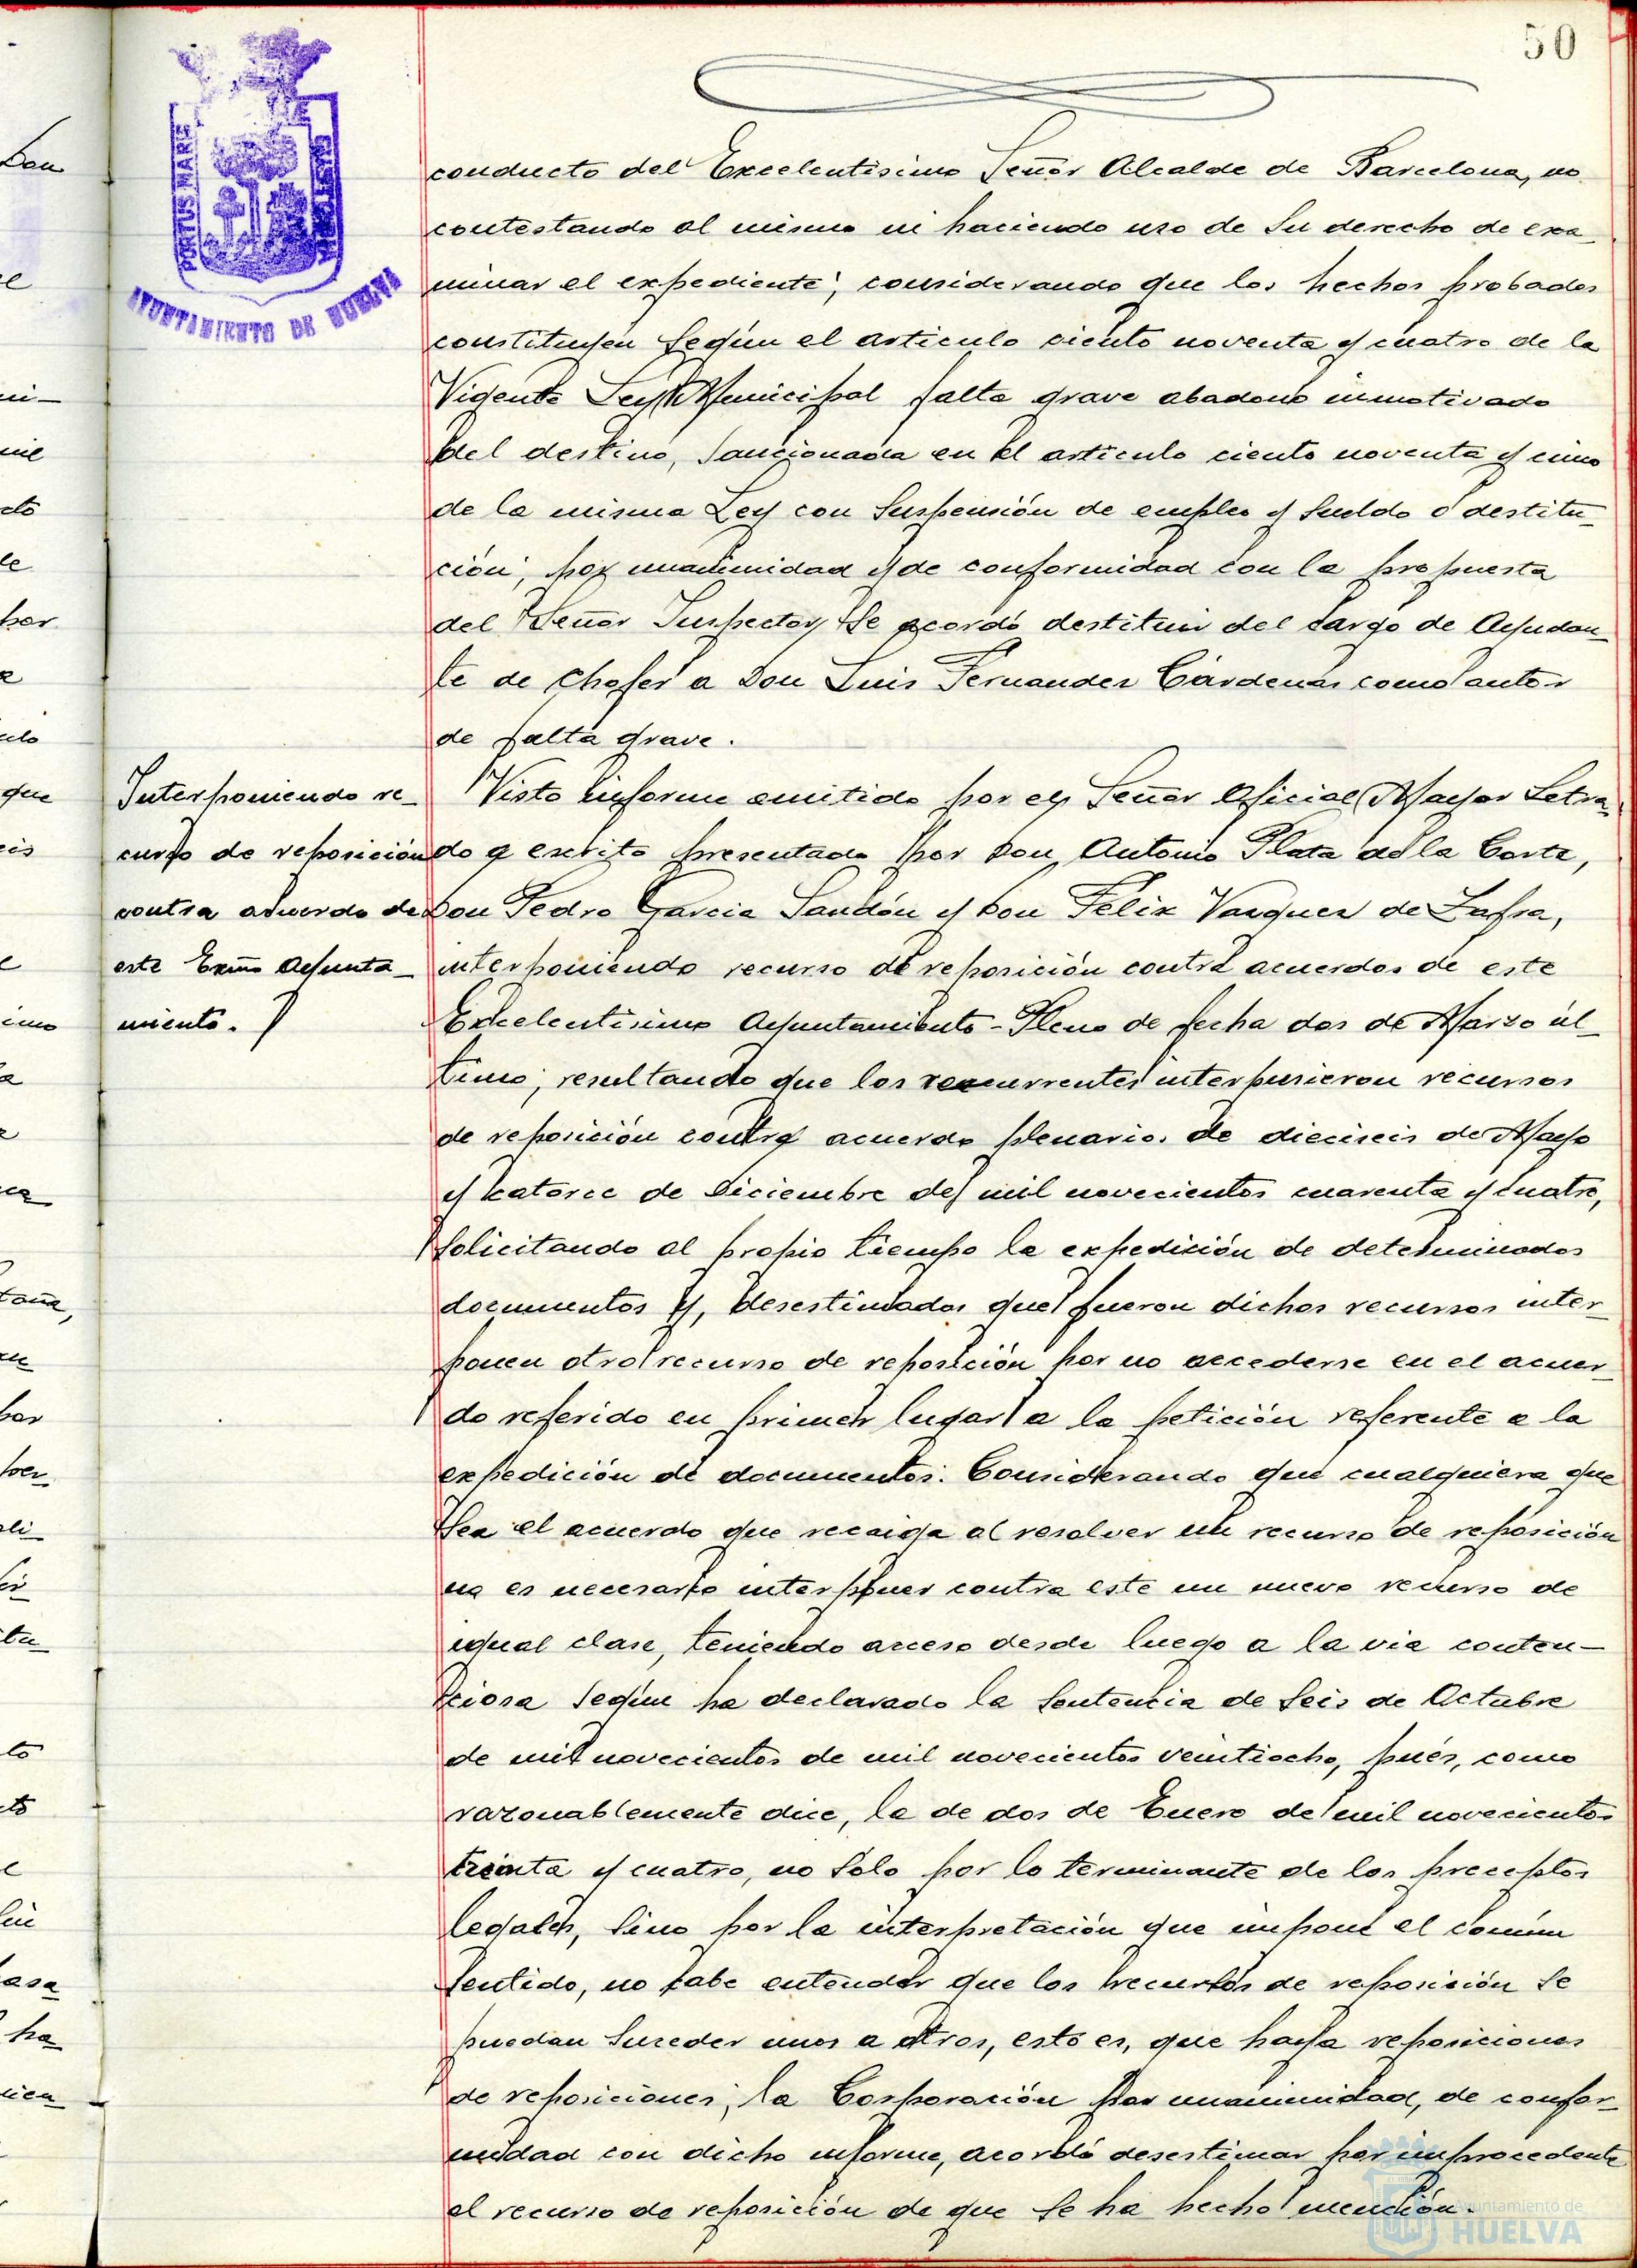 50
PORTUS MARIS
ET TERRAE CUSTODIA
AYUNTAMIENTO DE HUELVA
conducto del Excelentísimo Señor Alcalde de Barcelona, no
contestando al mismo ni haciendo uso de su derecho de exa-
minar el expediente; considerando que los hechos probados
constituyen según el artículo ciento noventa y cuatro de la
Vigente Ley Municipal falta grave abadono inmotivado
del destino, sancionada en el artículo ciento noventa y cinco
de la misma Ley con suspensión de empleo y sueldo o destitu-
ción; por unanimidad y de conformidad con la propuesta
del Señor Inspector, se acordó destituir del cargo de Ayudan-
te de chofer a Don Luis Fernandez Cárdenas como autor
de falta grave.
Interponiendo re-
curso de reposición
contra acuerdo de
este Exmo Ayunta-
miento.
Visto informe emitido por el Señor Oficial Mayor Letra-
do a escrito presentado por Don Antonio Plata de la Corte,
Don Pedro Garcia Sandón y Don Felix Vazquez de Zafra,
interponiendo recurso de reposición contra acuerdos de este
Excelentisimo Ayuntamiento-Pleno de fecha dos de Marzo úl-
timo; resultando que los recurrentes interpusieron recursos
de reposición contra acuerdo plenarios de dieciseis de Mayo
y catorce de Diciembre de mil novecientos cuarenta y cuatro,
solicitando al propio tiempo la expedición de determinados
documentos y, desestimados que fueron dichos recursos inter-
ponen otro recurso de reposición por no accederse en el acuer-
do referido en primer lugar a la petición referente a la
expedición de documentos. Considerando que cualquiera que
sea el acuerdo que recaiga al resolver un recurso de reposición
no es necesario interponer contra este un nuevo recurso de
igual clase, teniendo acceso desde luego a la via conten-
ciosa según ha declarado la sentencia de seis de Octubre
de mil novecientos de mil novecientos veintiocho, pués, como
razonablemente dice, la de dos de Enero de mil novecientos
treinta y cuatro, no sólo por lo terminante de los preceptos
legales, sino por la interpretación que impone el común
sentido, no cabe entender que los recursos de reposición se
puedan suceder unos a otros, esto es, que haya reposiciones
de reposiciones; la Corporación por unanimidad, de confor-
midad con dicho informe, acordó desestimar por improcedente
el recurso de reposición de que se ha hecho mención.
Ayuntamiento de
HUELVA